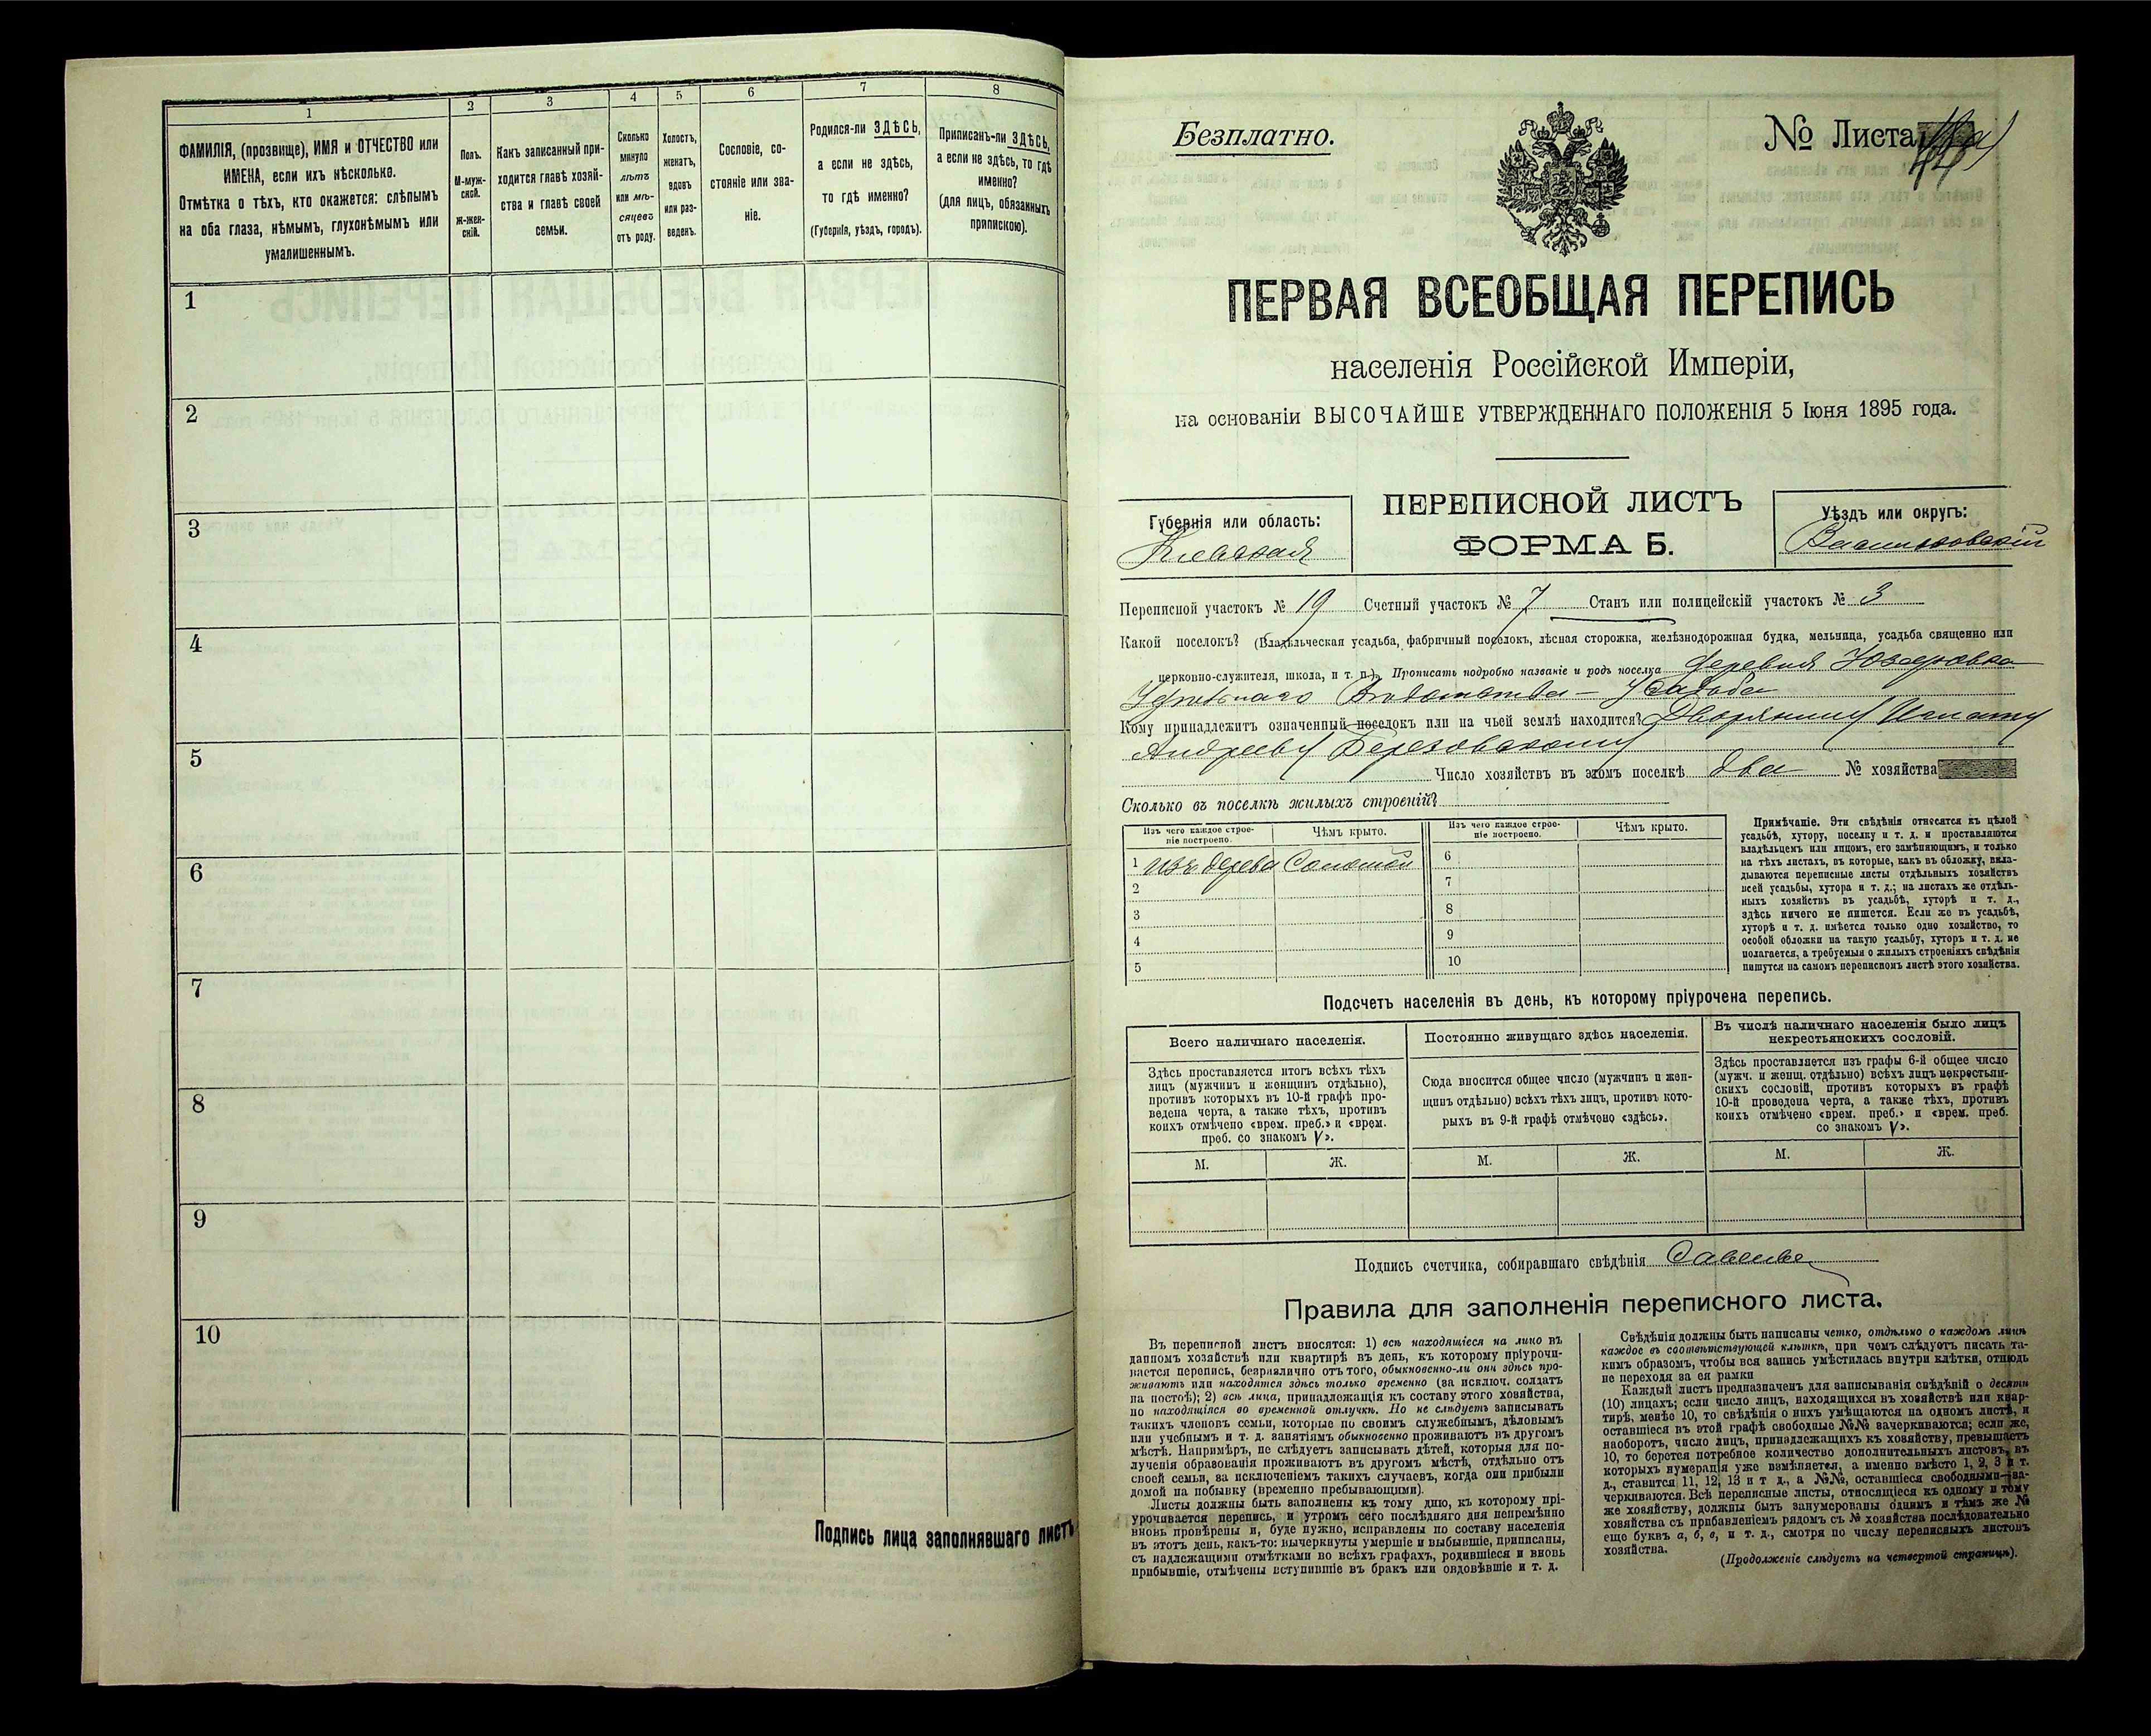 1 2 3 4 5 6 7 8
ФАМИЛІЯ, (прозвище), ИМЯ и ОТЧЕСТВО или
ИМЕНА, если ихъ нѣсколько.
Отмѣтка о тѣхъ, кто окажется: слѣпымъ
на оба глаза, нѣмымъ, глухонѣмымъ или
умалишеннымъ.
Полъ.
М-муж-
ской.
Ж-жен-
скій.
Какъ записанный при-
ходится главѣ хозяй-
ства и главѣ своей
семьи.
Сколько
минуло
лѣтъ
или мѣ-
сяцевъ
отъ роду.
Холостъ,
женатъ,
вдовъ
или раз-
веденъ.
Сословіе, со-
стояніе или зва-
ніе.
Родился-ли ЗДѢСЬ,
а если не здѣсь,
то гдѣ именно?
(Губернія, уѣздъ, городъ).
Приписанъ-ли ЗДѢСЬ,
а если не здѣсь, то гдѣ
именно?
(для лицъ, обязанныхъ
припискою).
1
2
3
4
5
6
7
8
9
10
Подпись лица заполнявшаго листъ
Безплатно.
№ Листа
ПЕРВАЯ ВСЕОБЩАЯ ПЕРЕПИСЬ
населенія Россійской Имперіи,
на основаніи ВЫСОЧАЙШЕ УТВЕРЖДЕННАГО ПОЛОЖЕНІЯ 5 Іюня 1895 года.
ПЕРЕПИСНОЙ ЛИСТЪ
ФОРМА Б.
Губернія или область:
Кіевская
Уѣздъ или округъ:
Васильковскій
Переписной участокъ № 19 Счетный участокъ № 7 Станъ или полицейскій участокъ № 3
Какой поселокъ? (Владѣльческая усадьба, фабричный поселокъ, лѣсная сторожка, желѣзнодорожная будка, мельница, усадьба священно или
церковно-служителя, школа, и т. п.). Прописать подробно названіе и родъ поселка деревня Юзефовка
Удѣльнаго Вѣдомства – Усадьба
Кому принадлежитъ означенный поселокъ или на чьей землѣ находится? Дворянину Игнату
Андрееву Березовскому
Число хозяйствъ въ этомъ поселкѣ два № хозяйства
Сколько въ поселкѣ жилыхъ строеній?
Изъ чего каждое строе-
ніе построено.
Чѣмъ крыто.
Изъ чего каждое строе-
ніе построено.
Чѣмъ крыто.
1 изъ дерева Соломой 6
2 7
3 8
4 9
5 10
Примѣчаніе. Эти свѣдѣнія относятся къ цѣлой
усадьбѣ, хутору, поселку и т. д. и проставляются
владѣльцемъ или лицомъ, его замѣняющимъ, и только
на тѣхъ листахъ, въ которые, какъ въ обложку, вкла-
дываются переписные листы отдѣльныхъ хозяйствъ
всей усадьбы, хутора и т. д.; на листахъ же отдѣль-
ныхъ хозяйствъ въ усадьбѣ, хуторѣ и т. д.,
здѣсь ничего не пишется. Если же въ усадьбѣ,
хуторѣ и т. д. имѣется только одно хозяйство, то
особой обложки на такую усадьбу, хуторъ и т. д. не
полагается, а требуемыя о жилыхъ строеніяхъ свѣдѣнія
пишутся на самомъ переписномъ листѣ этого хозяйства.
Подсчетъ населенія въ день, къ которому пріурочена перепись.
Всего наличнаго населенія.
Здѣсь проставляется итогъ всѣхъ тѣхъ
лицъ (мужчинъ и женщинъ отдѣльно),
противъ которыхъ въ 10-й графѣ про-
ведена черта, а также тѣхъ, противъ
коихъ отмѣчено «врем. преб.» и «врем.
преб. со знакомъ V».
Постоянно живущаго здѣсь населенія.
Сюда вносится общее число (мужчинъ и жен-
щинъ отдѣльно) всѣхъ тѣхъ лицъ, противъ кото-
рыхъ въ 9-й графѣ отмѣчено «здѣсь».
Въ числѣ наличнаго населенія было лицъ
некрестьянскихъ сословій.
Здѣсь проставляется изъ графы 6-й общее число
(мужч. и женщ. отдѣльно) всѣхъ лицъ некрестьян-
скихъ сословій, противъ которыхъ въ графѣ
10-й проведена черта, а также тѣхъ, противъ
коихъ отмѣчено «врем. преб.» и «врем. преб.
со знакомъ V».
М. Ж. М. Ж. М. Ж.
Подпись счетчика, собиравшаго свѣдѣнія
Правила для заполненія переписного листа.
Въ переписной листъ вносятся: 1) всѣ находящіеся на лицо въ
данномъ хозяйствѣ или квартирѣ въ день, къ которому пріурочи-
вается перепись, безразлично отъ того, обыкновенно-ли они здѣсь про-
живаютъ или находятся здѣсь только временно (за исключ. солдатъ
на постоѣ); 2) всѣ лица, принадлежащія къ составу этого хозяйства,
но находящіяся во временной отлучкѣ. Но не слѣдуетъ записывать
такихъ членовъ семьи, которые по своимъ служебнымъ, дѣловымъ
или учебнымъ и т. д. занятіямъ обыкновенно проживаютъ въ другомъ
мѣстѣ. Напримѣръ, не слѣдуетъ записывать дѣтей, которыя для по-
лученія образованія проживаютъ въ другомъ мѣстѣ, отдѣльно отъ
своей семьи, за исключеніемъ такихъ случаевъ, когда они прибыли
домой на побывку (временно пребывающими).
Листы должны быть заполнены къ тому дню, къ которому прі-
урочивается перепись, и утромъ сего послѣдняго дня непремѣнно
вновь провѣрены и, буде нужно, исправлены по составу населенія
въ этотъ день, какъ-то: вычеркнуты умершіе и выбывшіе, приписаны,
съ надлежащими отмѣтками во всѣхъ графахъ, родившіеся и вновь
прибывшіе, отмѣчены вступившіе въ бракъ или овдовѣвшіе и т. д.
Свѣдѣнія должны быть написаны четко, отдѣльно о каждомъ лицѣ
каждое въ соотвѣтствующей клѣткѣ, при чемъ слѣдуетъ писать та-
кимъ образомъ, чтобы вся запись умѣстилась внутри клѣтки, отнюдь
не переходя за ея рамки
Каждый листъ предназначенъ для записыванія свѣдѣній о десяти
(10) лицахъ; если число лицъ, находящихся въ хозяйствѣ или квар-
тирѣ, менѣе 10, то свѣдѣнія о нихъ умѣщаются на одномъ листѣ, и
оставшіеся въ этой графѣ свободные №№ зачеркиваются; если же,
наоборотъ, число лицъ, принадлежащихъ къ хозяйству, превышаетъ
10, то берется потребное количество дополнительныхъ листовъ, въ
которыхъ нумерація уже измѣняется, а именно вмѣсто 1, 2, 3 и т.
д., ставится 11, 12, 13 и т д., а №№, оставшіеся свободными за-
черкиваются. Всѣ переписные листы, относящіеся къ одному и тому
же хозяйству, должны быть занумерованы однимъ и тѣмъ же №
хозяйства съ прибавленіемъ рядомъ съ № хозяйства послѣдовательно
еще буквъ а, б, в, и т. д., смотря по числу переписныхъ листовъ
хозяйства.
(Продолженіе слѣдуетъ на четвертой страницѣ).